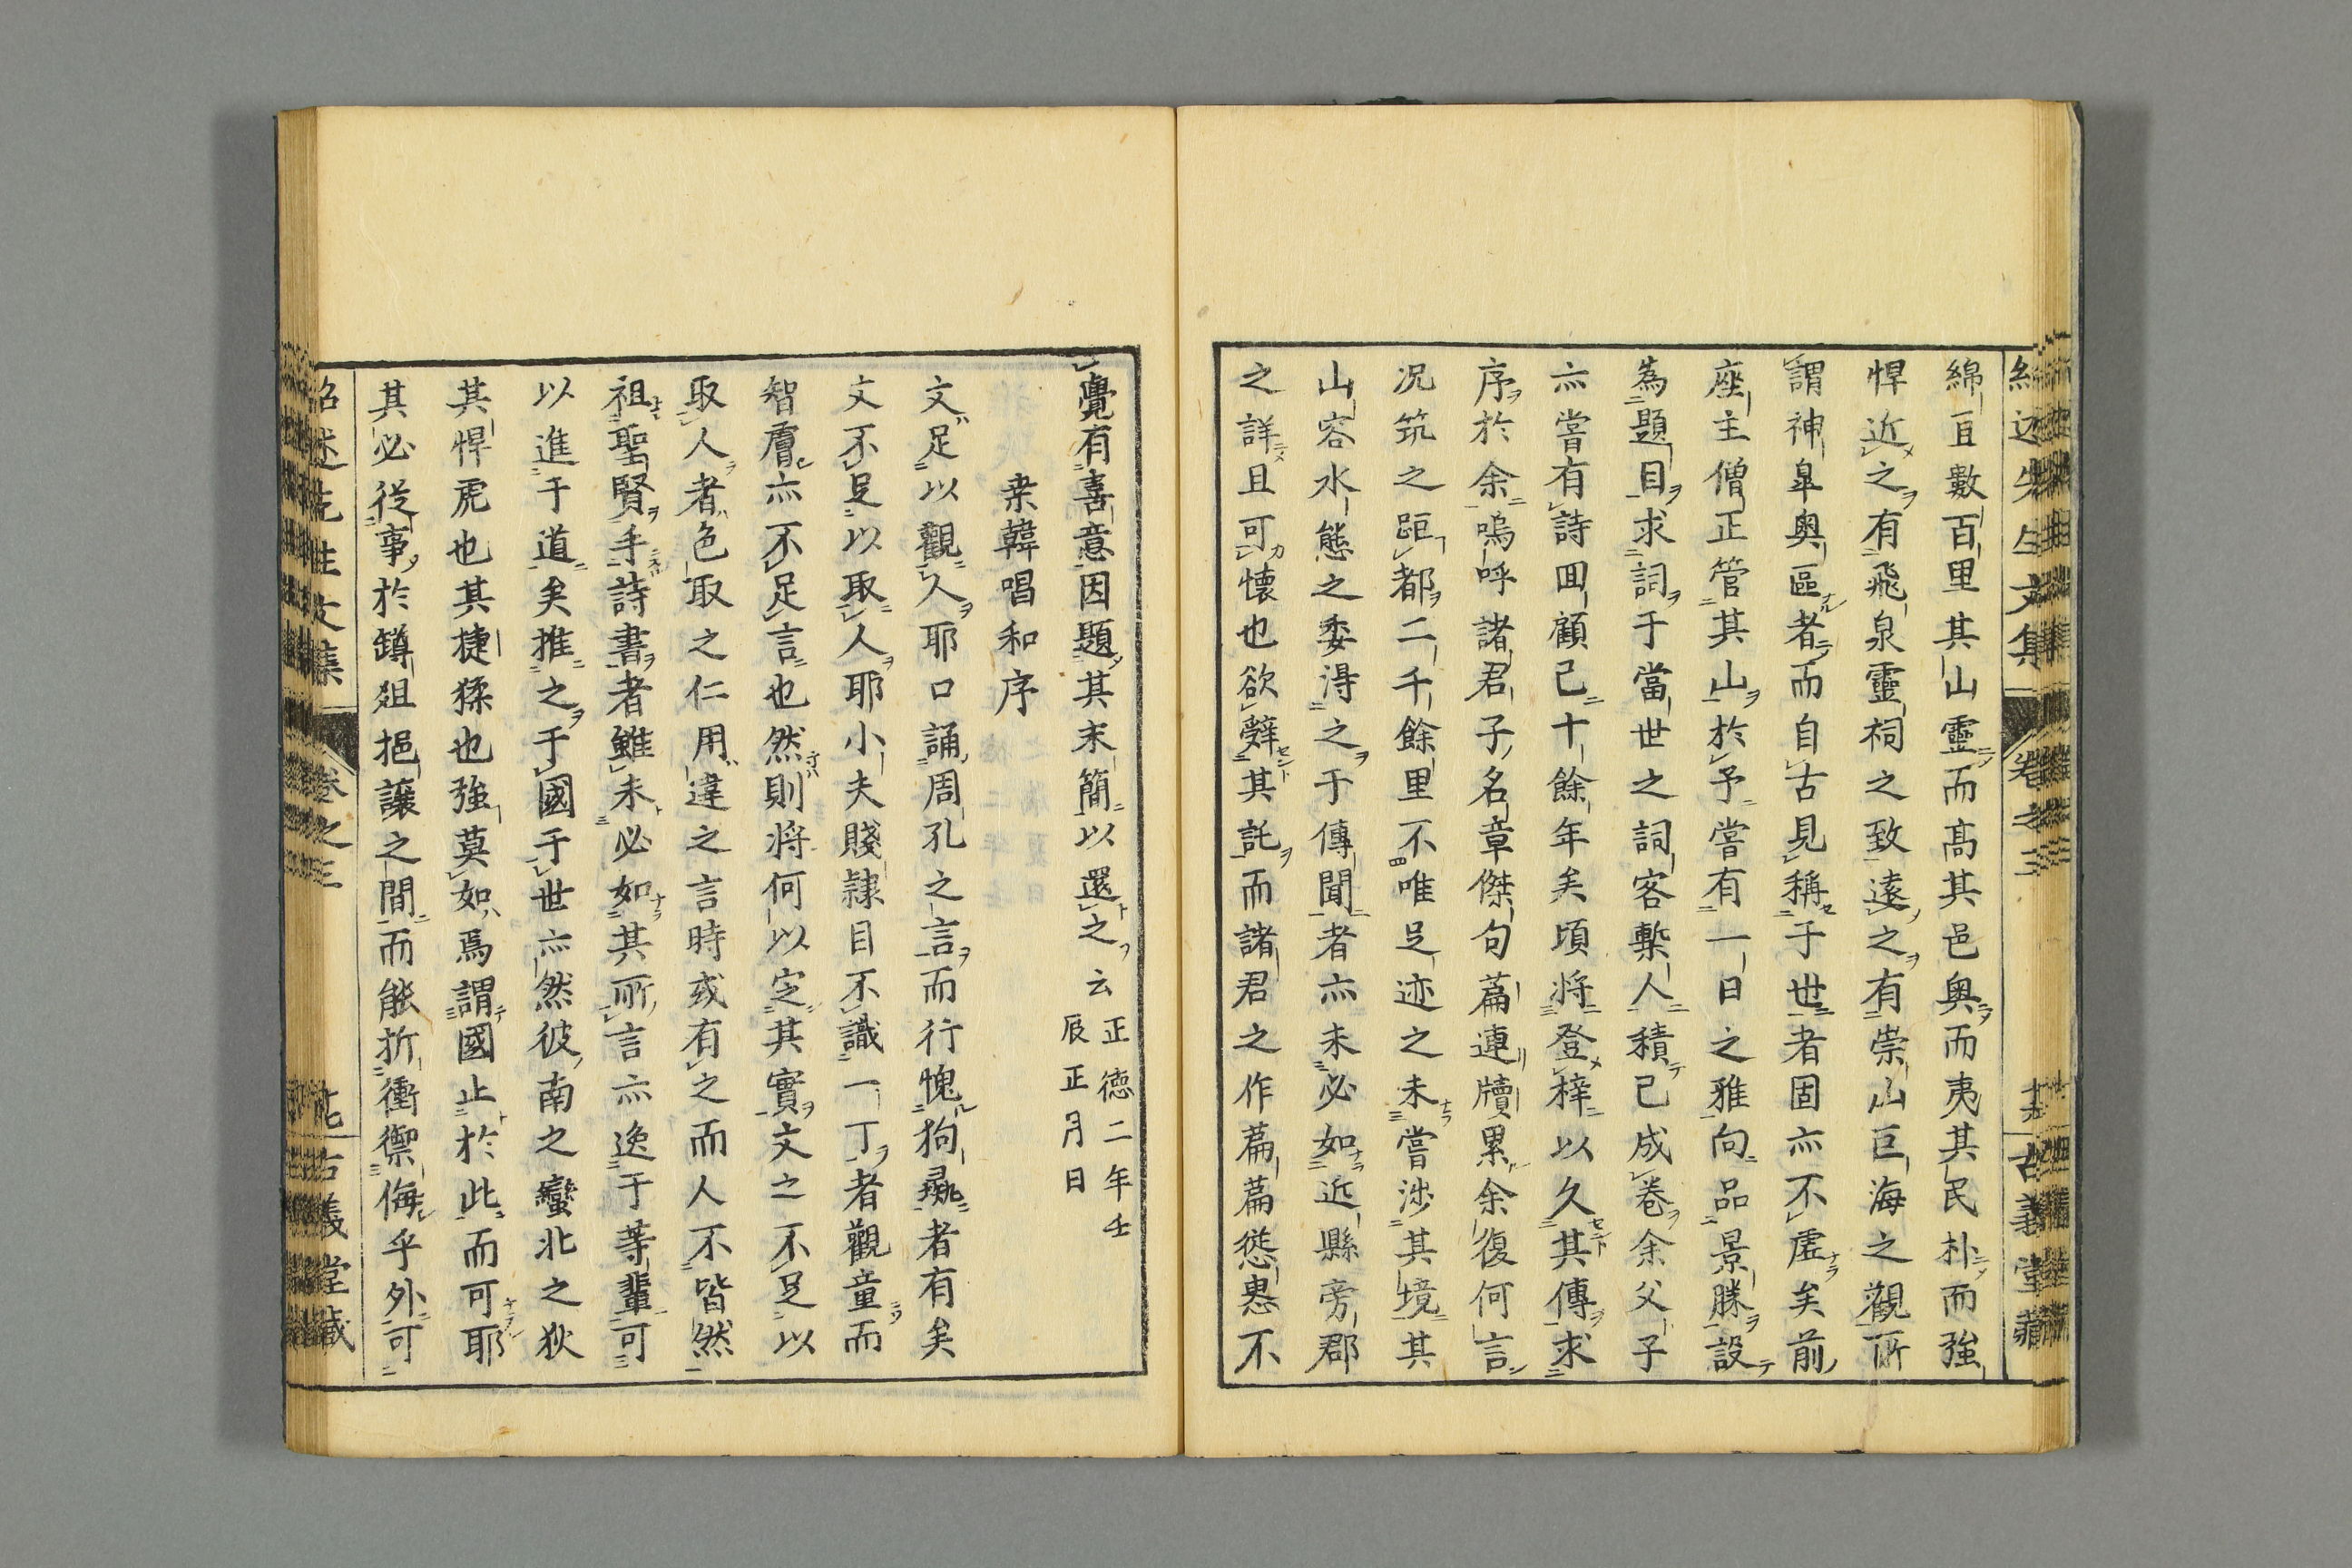 綿亘數百里其山靈而髙其邑奧而夷其民朴而強
悍近之有飛泉靈祠之致遠之有崇山巨海之觀所
謂神皐奧區者而自古見稱于世者固亦不虛矣前
座主僧正管其山於予嘗有一日之雅向品景勝設
為題目求詞于當世之詞客槧人積已成卷余父子
亦嘗有詩回顧已十餘年矣頃将登梓以久其傳求
序於余嗚呼諸君子名章傑句篇連牘累余復何言
况筑之距都二千餘里不唯足迹之未嘗涉其境其
山容水態之委得之于傳聞者亦未必如近縣旁郡
之詳且可懐也欲辭其託而諸君之作篇篇慫慂不
覺有喜意因題其末簡以還之云
正德二年壬
辰正月日
桒韓唱和序
文足以觀人耶口誦周孔之言而行愧狗彘者有矣
文不足以取人耶小夫賤隷目不識一丁者觀童而
智膚亦不足言也然則将何以定其實文之不足以
取人者色取之仁用違之言時或有之而人不皆然
祖聖賢手詩書者雖未必如其所言亦逸于等輩可
以進于道矣推之于國于世亦然彼南之蠻北之狄
其悍虎也其捷猱也強莫如焉謂國止於此而可耶
其必從事於罇俎挹讓之間而能折衝禦侮乎外可
紹述先生文集
卷之三
古義堂藏